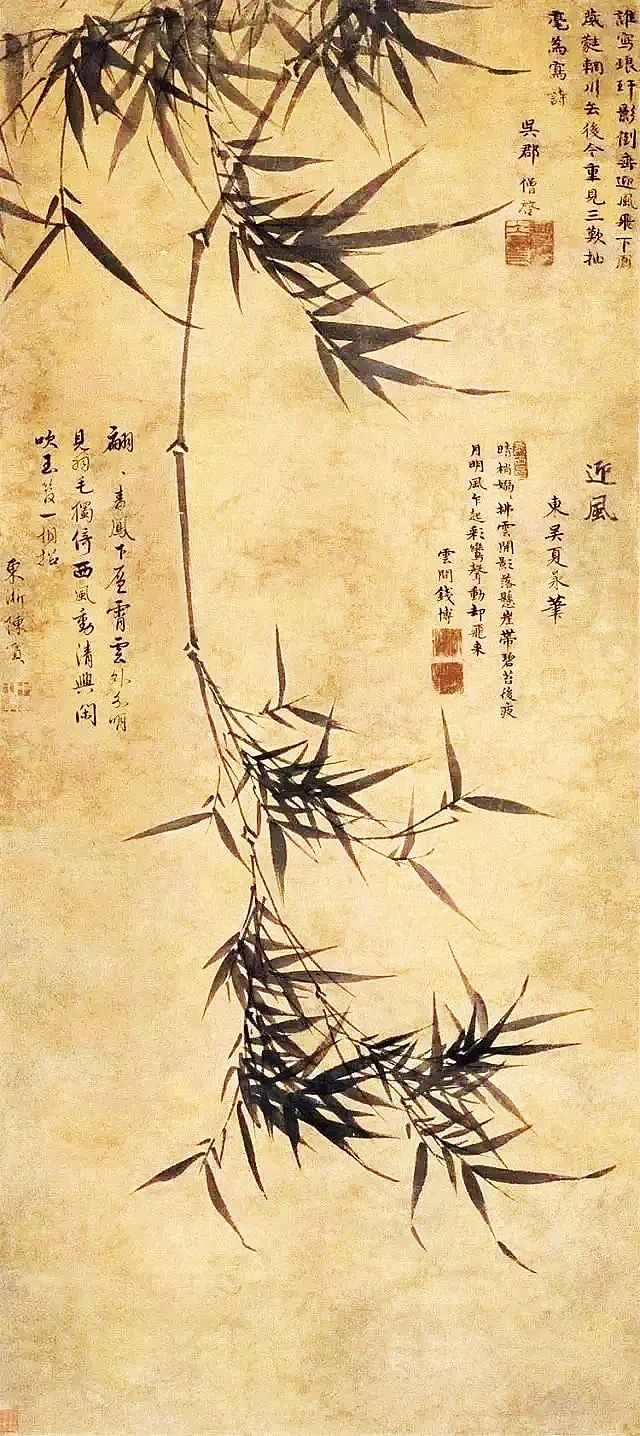 誰寫琅玕影倒垂迎風飛下鳳
葳蕤輞川去後今重見三歎抽
毫為寫詩
吳郡 僧啓
迎風
東吳夏㫤筆
晴梢嫋〻拂雲開影落懸崖帶碧苔後夜
月明風乍起彩鸞聲動却飛來
雲間錢博
翩〻青鳳下層霄雲外分明
見羽毛獨倚西風動清興閑
吹玉一相招
東浙陳